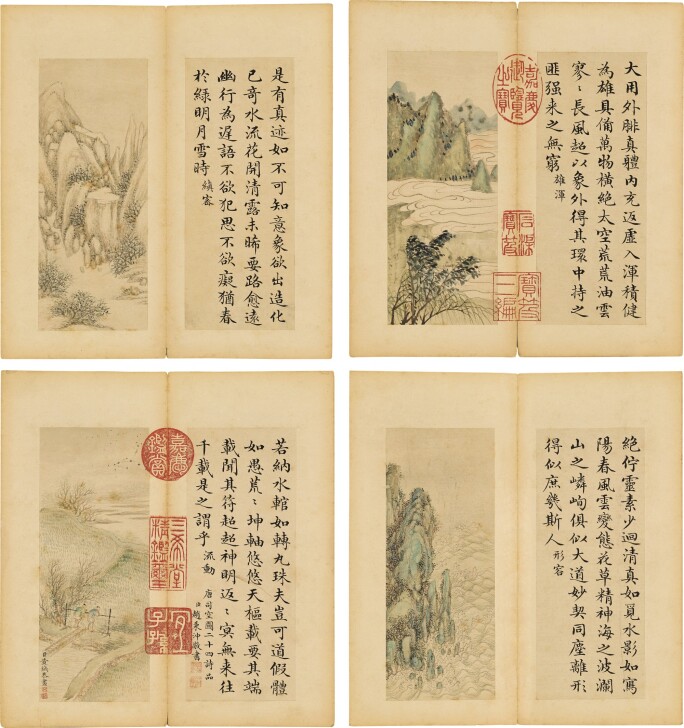 大用外腓真體內充返虛入渾積健
為雄具備萬物橫絕太空荒荒油雲
寥〻長風超以象外得其環中持之
匪强來之無窮 雄渾
嘉慶御覽之寶
石渠寶笈
寶笈三編
是有真迹如不可知意象欲出造化
已奇水流花開清露未晞要路愈遠
幽行為遲語不欲犯思不欲癡猶春
於綠明月雪時 縝密
絕佇靈素少迴清真如覓水影如寫
陽春風雲變態花草精神海之波瀾
山之嶙峋俱似大道妙契同塵離形
得似庶幾斯人 形容
若納水輨如轉丸珠夫豈可道假體
如愚荒〻坤軸悠悠天樞載要其端
載聞其符超超神明返〻冥無來往
千載是之謂乎 流動
唐司空圖二十四詩品
臣趙秉沖敬書
嘉慶鑑賞
三希堂精鑑璽
宜子孫
臣黃鉞恭畫